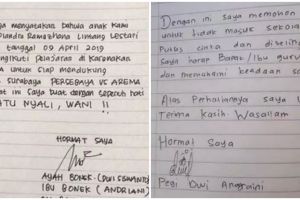 ga menyatakan bahwa anak kami
Diandra Ramadhana Lintang Lestari
tanggal 09 April 2019
ngikuti Pelajaran di Karenakan
a untuk siap mendukung
Surabaya PERSEBAYA VS AREMA
at ini saya buat dengan sepenuh hati
ATU NYALI, WANI !!
HORMAT SAYA
AYAH BONEK (DWI SISWANTO)
IBU BONEK (ANDRIANI)
Dengan ini saya memohon
untuk tidak masuk sekola
Putus cinta dan
saya harap Bapak/Ibu guru
dan memahami keadaan s
Atas Perhatiannya saya
Terima kasih. Wasallam
Hormat Saya
Pegi Dwi Anggraini